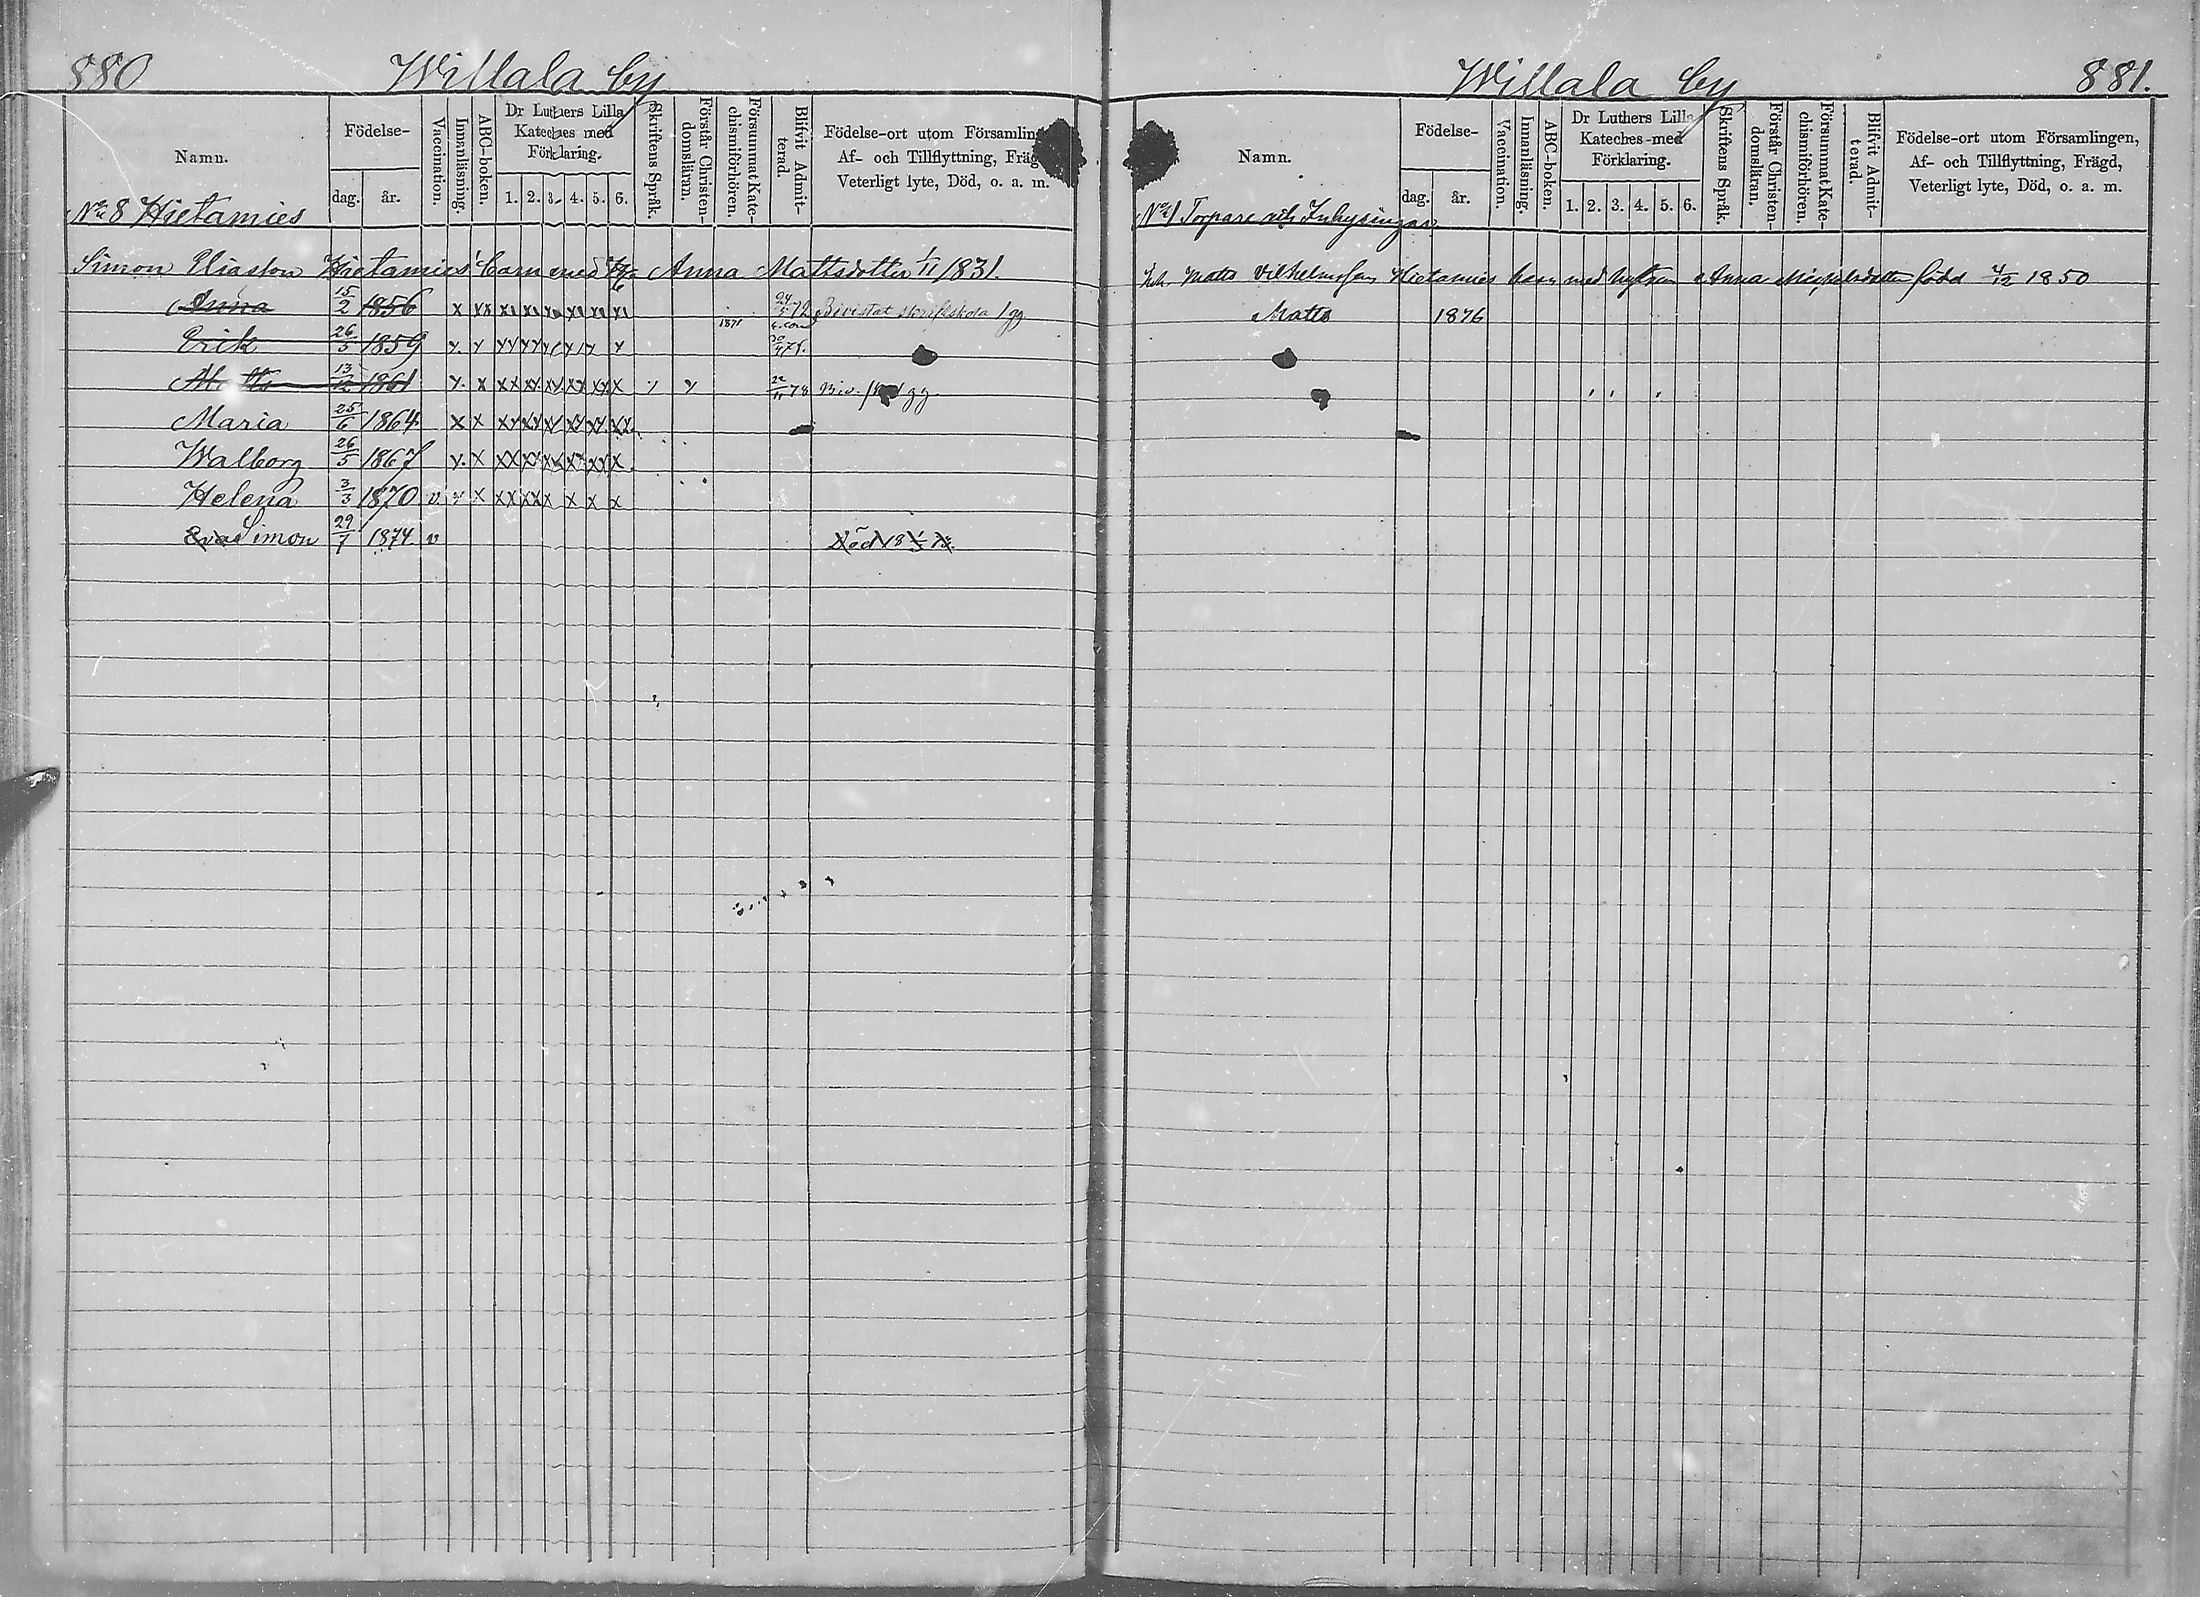 880 Willala by
Namn.
Födelse-
dag. år.
Vaccination.
Innanläsning.
ABC-boken.
Dr Luthers Lilla
Kateches med
Förklaring.
1. 2. 3. 4. 5. 6.
Skriftens Språk.
Förstår Christen-
domsläran.
Försummat Kate-
chismiförhören.
Blifvit Admit-
terad.
Födelse-ort utom Församlin
Af- och Tillflyttning, Fräg
Veterligt lyte, Död, o. a. m.
No 8 Hietamies
Simon Eliasson Hietamies' barn med Anna Mattsdotter 1/11 1831.
Anna 15/2 1856 x xx 1871 Bivistat skriftskola 1 gg
Erik 26/5 1859
Matts 13/12 1861 22/11 78 Biv. 1 gg.
Maria 25/6 1864
Walborg 26/5 1867
Helena 3/3 1870 v.
Eva Simon 29/7 1874 v Död
Willala by 881.
Namn.
Födelse-
dag. år.
Vaccination.
Innanläsning.
ABC-boken.
Dr Luthers Lilla
Kateches-med
Förklaring.
1. 2. 3. 4. 5. 6.
Skriftens Språk.
Förstår Christen-
domsläran.
Försummat Kate-
chismiförhören.
Blifvit Admit-
terad.
Födelse-ort utom Församlingen,
Af- och Tillflyttning, Frägd,
Veterligt lyte, Död, o. a. m.
No 1 Torpare och Inhysingar
Inh. Matts Vilhelmsson Hietamies barn med hustrun Anna Michelsdotter född 4/12 1850
Matts 1876